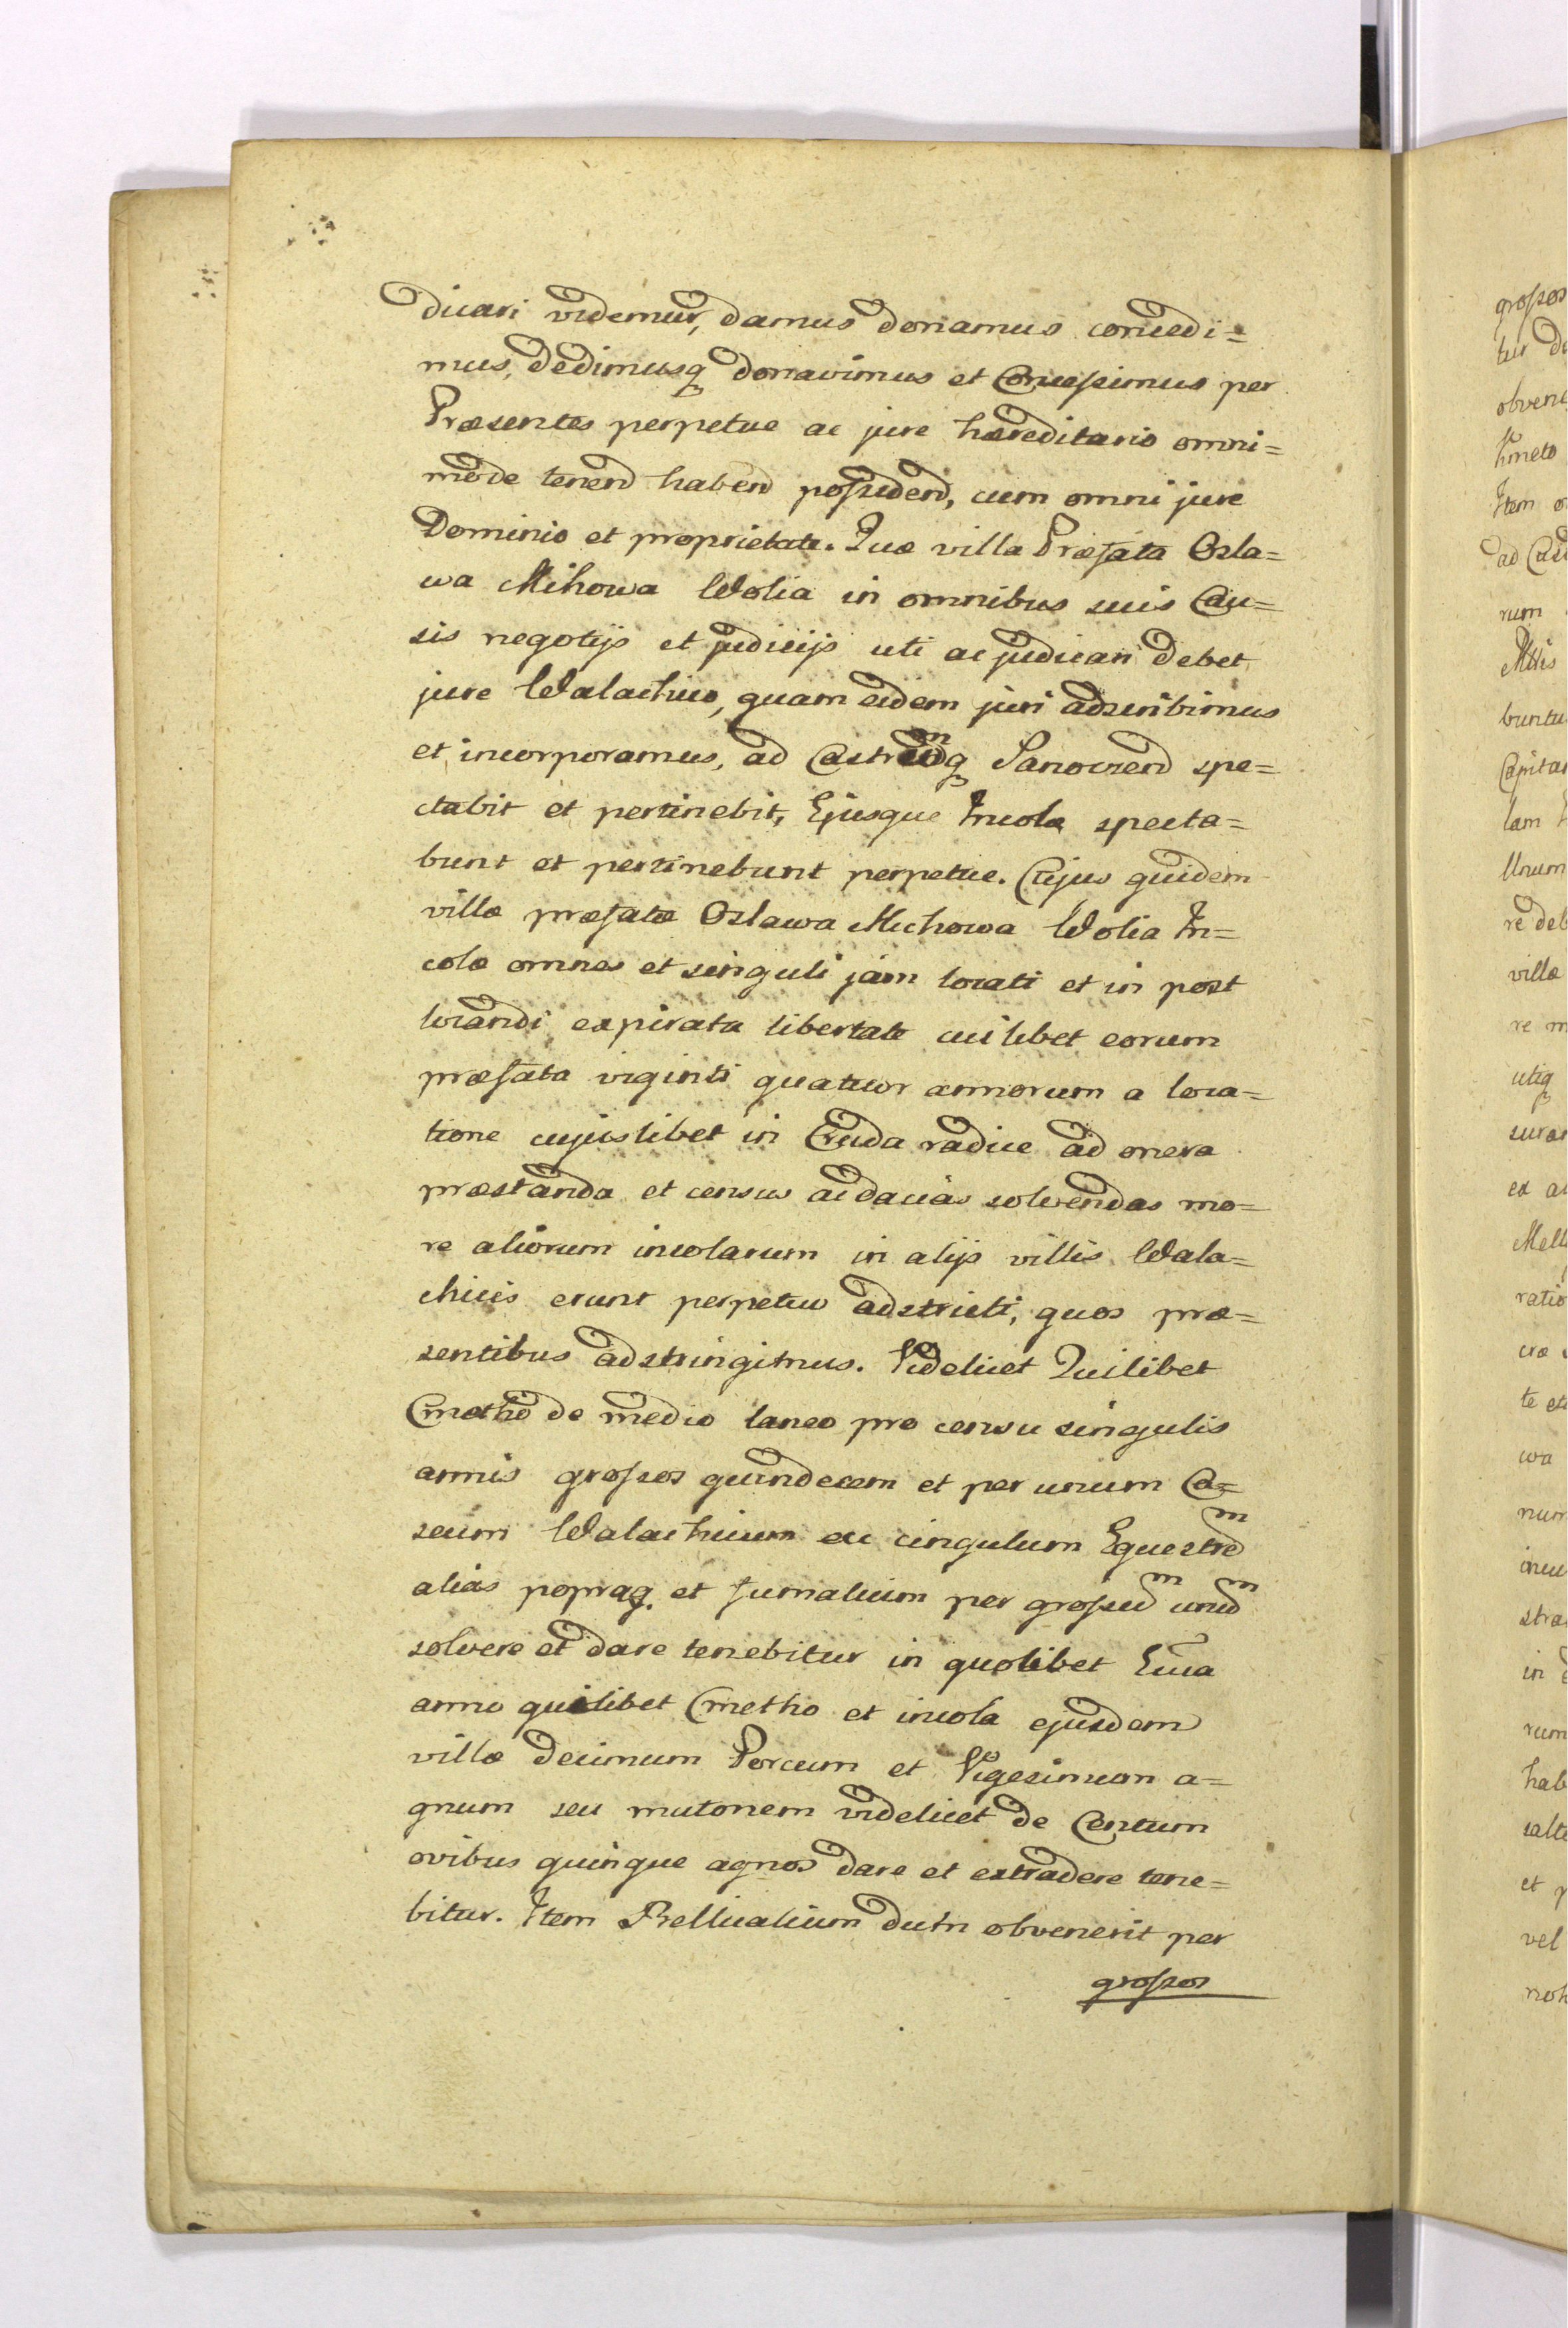 dicari videmur, damus donamus concedi=
mus, dedimusq donavimus et Concessimus per
Præsentes perpetue ac jure hæreditario omni=
mode tenend habend possidend, cum omni jure
Dominio et proprietate. Quæ villa Præfata Osla=
wa Mihowa Wolia in omnibus suis Cau=
sis negotijs et judicijs uti ac judicari debet
jure Walachico, quam eidem juri adscribimus
et incorporamus, ad Castrumq Sanoczend spe=
ctabit et pertinebit, Ejusque Incolæ specta=
bunt et pertinebunt perpetue. Cujus quidem
villæ præfatæ Oslawa Michowa Wolia In=
colæ omnes et singuli jam locati et in post
locandi expirata libertate cuilibet eorum
præfata viginti quatuor annorum a loca=
tione cujuslibet in Cruda radice ad onera
præstanda et census ac dacias solvendas mo=
re aliorum incolarum in alijs villis Wala=
chicis erunt perpetuo adstricti, quos præ=
sentibus adstringimus. Videlicet Quilibet
Cmetho de medio laneo pro censu singulis
annis grossos quindecem et per unum Ca=
seum Walachicum ac cingulum Equestre m
alias poprag. et fumalium per grossu m unu m
solvere et dare tenebitur in quolibet
anno quilibet Cmetho et incola ejusdem
villæ decimum Porcum et Vigesimum a=
gnum seu mutonem videlicet de Centum
ovibus quinque agnos dare et extradere tene=
bitur. Item Bellicalium dum obvenerit per
grossos
grossos
tur
obvene
kmeto
Item
ad Cast
rum
buntu
Capitan
lam
Unum
re deb
villæ
re m
utiq
ex
Mell
ratio
te
wa
num
stra
in
rum
hab
salte
et p
vel